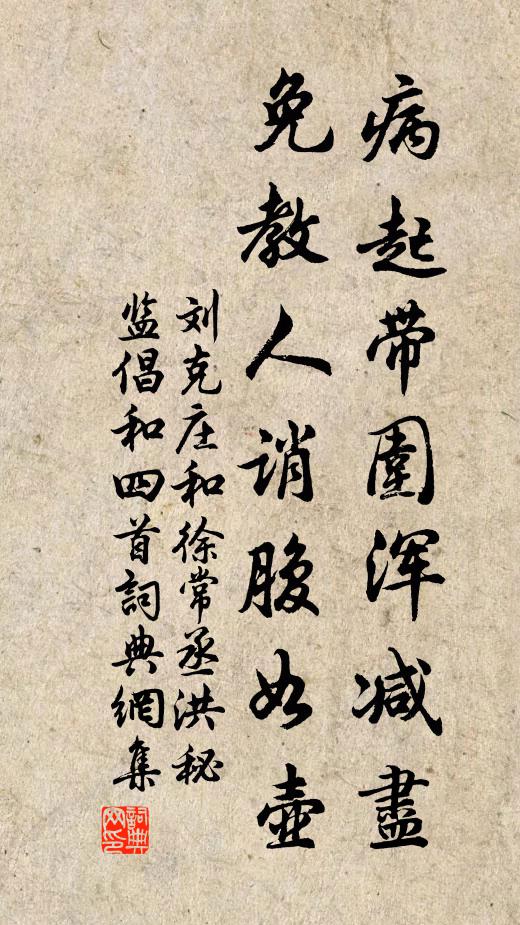 病起带圍浑减盡
免教人诮腹如壺
刘克庄和徐常丞洪秘
监倡和四首詞典網集
詞典
网印